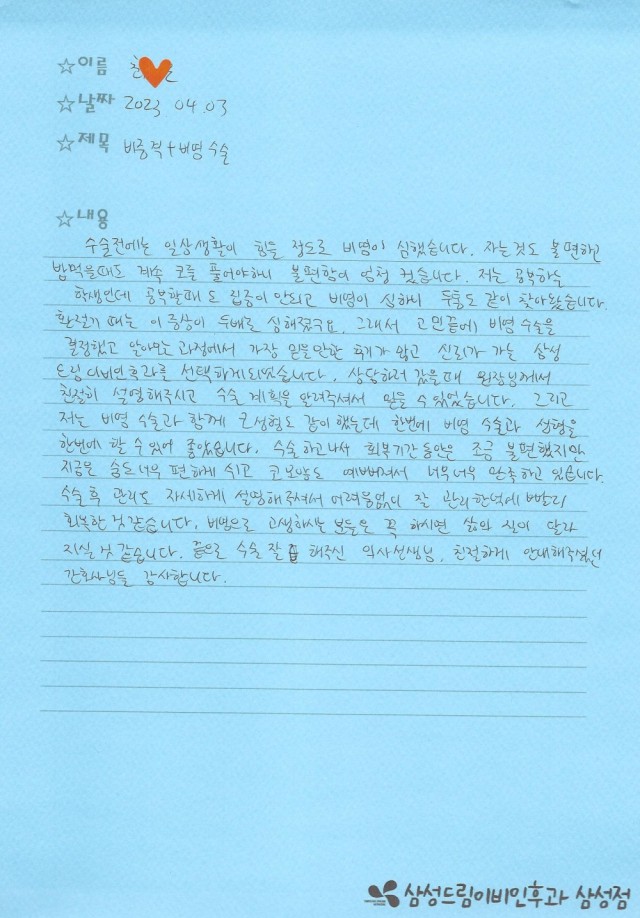 ☆이름
☆날짜 2023 04.03
☆제목 비중격+비염수술
☆내용
수술전에는 일상생활이 힘들 정도로 비염이 심했습니다. 자는것도 불편하고
밥먹을때도 계속 코를 풀어야하니 불편함이 엄청 컸습니다. 저는 공부하는
학생인데 공부할때도 집중이 안되고 비염이 심하니 두통도 같이 찾아왔습니다.
환절기 때는 이 증상이 두배로 심해졌구요. 그래서 고민끝에 비염 수술을
결정했고 알아보는 과정에서 가장 믿을만한 후기가 많고 신뢰가 가는 삼성
드림이비인후과를 선택하게되었습니다. 상담하러 갔을때 원장님께서
친절히 설명해주시고 수술 계획을 알려주셔서 믿을 수 있었습니다. 그리고
저는 비염 수술과 함께 코성형도 같이 했는데 한번에 비염 수술과 성형을
한번에 할 수 있어 좋았습니다. 수술하고나서 회복기간 동안은 조금 불편했지만
지금은 숨도 너무 편하게 쉬고 코모양도 예뻐져서 너무너무 만족하고 있습니다.
수술 후 관리도 자세하게 설명해주셔서 어려움없이 잘 관리한덕에 빨리
회복한 것 같습니다. 비염으로 고생하시는 분들은 꼭 하시면 삶의 질이 달라
지실 것 같습니다. 끝으로 수술 잘 해주신 의사선생님, 친절하게 안내해주셨던
간호사님들 감사합니다.
삼성드림이비인후과 삼성점